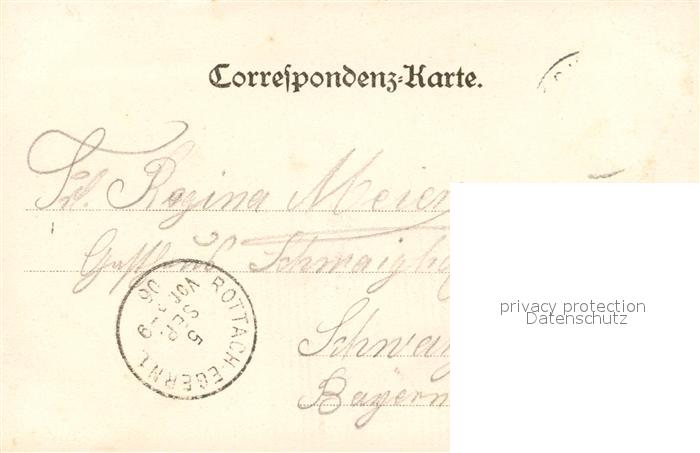 Correspondenz-Karte.
Frl. Regina Meier
Schwaig
Bayern
ROTTACH-EGERN 1.
5
SEP.
VOR. 8-9
privacy protection
Datenschutz